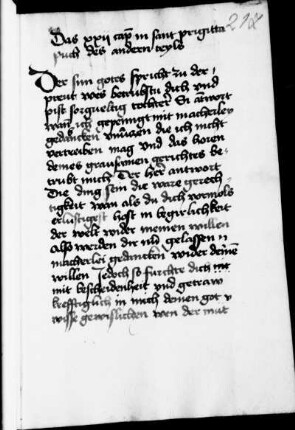 218
Das xxii cap in sant prigitta
puch des andern teyls
Der sun gotes spricht zu der
preut wes betrubstu dich und
pist sorgueltig tochter Si antwort
wan ich gepeinigt mit macherley
gedancken unnützen die ich nicht
vertreiben mag und das horen
deines grausamen gerichtes be-
trubt mich Der her antwort
Die ding sein die ware gerech-
tigkeit wan als du dich vormols
erlustigest hast in begirlichkeit
der welt wider meinen willen
Also werden dir nu gelassen
macherlei gedancken wider deinen
willen Jedoch so furchte dich
mit bescheidenheit und getraw
krefftiglich in mich deinen got v
wisse gewislichen wen der mut